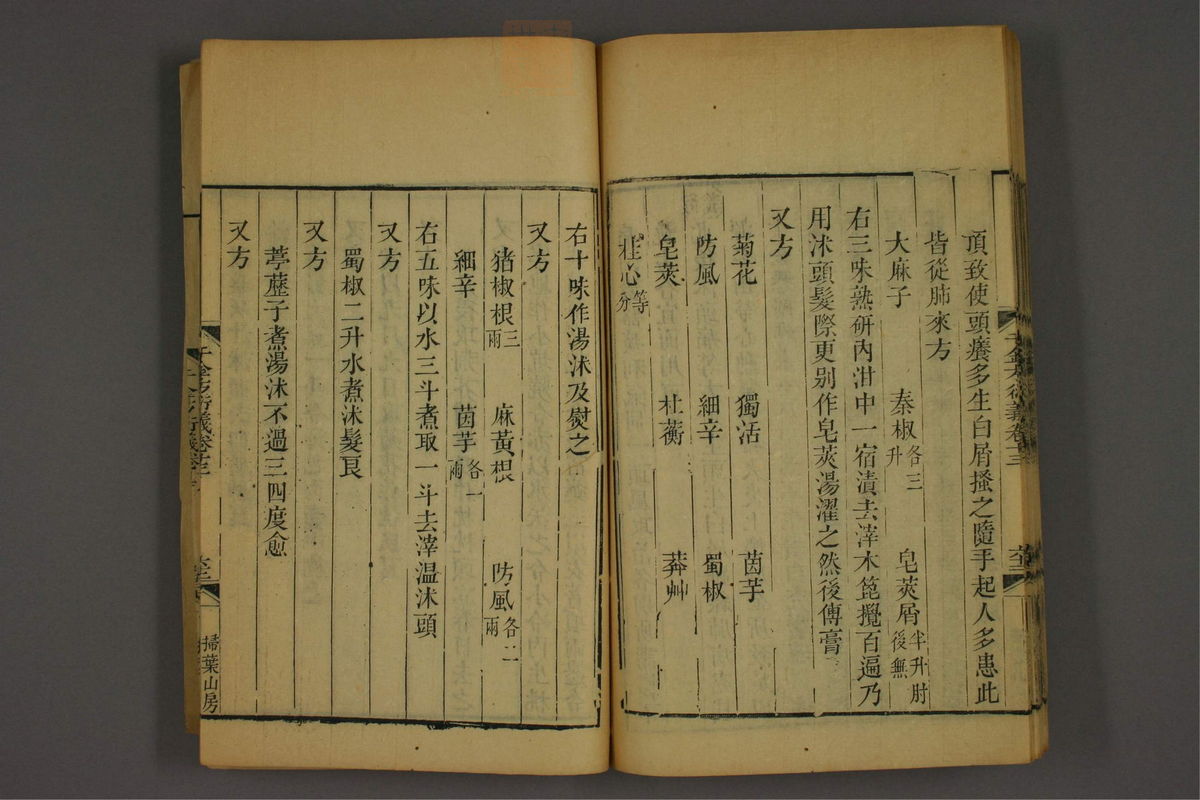 頂致使頭癢多生白屑搔之隨手起人多患此
皆從肺來方
大麻子 秦椒各三升 皂莢屑半升肘後無
右三味熟研內泔中一宿漬去滓木箆攪百遍乃
用沐頭髮際更别作皂莢湯濯之然後傅膏
又方
菊花 獨活 茵芋
防風 細辛 蜀椒
皂莢 杜蘅 莽艸
桂心等分
右十味作湯沐及熨之
又方
猪椒根三兩 麻黃根 防風各二兩
細辛 茵芋各一兩
右五味以水三斗煮取一斗去滓温沐頭
又方
蜀椒二升水煮沐髮良
又方
葶藶子煮湯沐不過三四度愈
又方
千金方衍義卷十三
掃葉山房